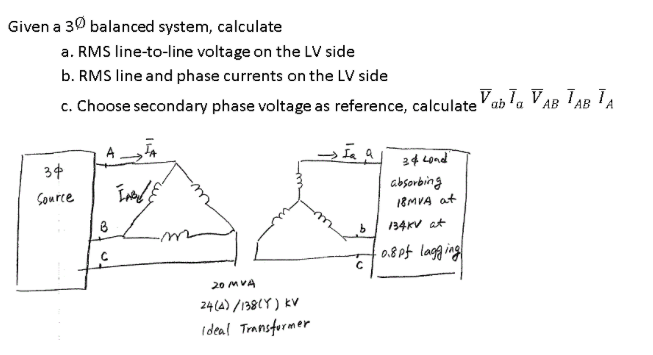 Given a 3Ø balanced system, calculate
a. RMS line-to-line voltage on the LV side
b. RMS line and phase currents on the LV side
c. Choose secondary phase voltage as reference, calculate V̄ab Īa V̄AB ĪAB ĪA
A → ĪA
→ Īa a
3ϕ
Source
ĪAB
B
C
b
c
3ϕ Load
absorbing
18MVA at
134KV at
0.8 pf lagging
20 MVA
24(Δ) /138(Y) kV
Ideal Transformer